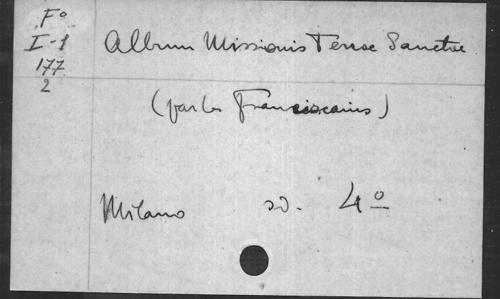 Fº
I-1
177
2
Album Missionis Terrae Sanctae
(par les Franciscains)
Milano sd. 4º